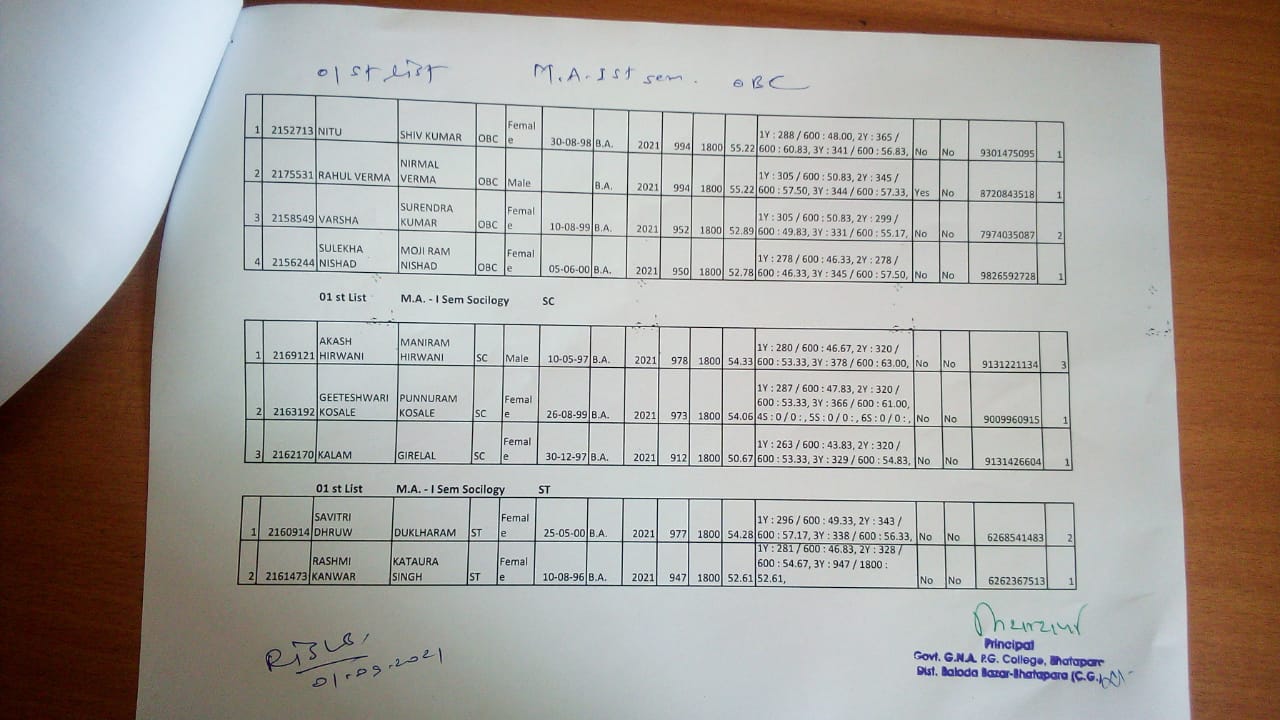 01 st list M.A. Ist sem. OBC
1 2152713 NITU SHIV KUMAR OBC Femal e 30-08-98 B.A. 2021 994 1800 55.22 1Y : 288 / 600 : 48.00, 2Y : 365 / 600 : 60.83, 3Y : 341 / 600 : 56.83, No No 9301475095 1
2 2175531 RAHUL VERMA NIRMAL VERMA OBC Male B.A. 2021 994 1800 55.22 1Y : 305 / 600 : 50.83, 2Y : 345 / 600 : 57.50, 3Y : 344 / 600 : 57.33, Yes No 8720843518 1
3 2158549 VARSHA SURENDRA KUMAR OBC Femal e 10-08-99 B.A. 2021 952 1800 52.89 1Y : 305 / 600 : 50.83, 2Y : 299 / 600 : 49.83, 3Y : 331 / 600 : 55.17, No No 7974035087 2
4 2156244 SULEKHA NISHAD MOJI RAM NISHAD OBC Femal e 05-06-00 B.A. 2021 950 1800 52.78 1Y : 278 / 600 : 46.33, 2Y : 278 / 600 : 46.33, 3Y : 345 / 600 : 57.50, No No 9826592728 1
01 st List M.A. - I Sem Socilogy SC
1 2169121 AKASH HIRWANI MANIRAM HIRWANI SC Male 10-05-97 B.A. 2021 978 1800 54.33 1Y : 280 / 600 : 46.67, 2Y : 320 / 600 : 53.33, 3Y : 378 / 600 : 63.00, No No 9131221134 3
2 2163192 GEETESHWARI KOSALE PUNNURAM KOSALE SC Femal e 26-08-99 B.A. 2021 973 1800 54.06 1Y : 287 / 600 : 47.83, 2Y : 320 / 600 : 53.33, 3Y : 366 / 600 : 61.00, 4S : 0 / 0 : , 5S : 0 / 0 : , 6S : 0 / 0 : , No No 9009960915 1
3 2162170 KALAM GIRELAL SC Femal e 30-12-97 B.A. 2021 912 1800 50.67 1Y : 263 / 600 : 43.83, 2Y : 320 / 600 : 53.33, 3Y : 329 / 600 : 54.83, No No 9131426604 1
01 st List M.A. - I Sem Socilogy ST
1 2160914 SAVITRI DHRUW DUKLHARAM ST Femal e 25-05-00 B.A. 2021 977 1800 54.28 1Y : 296 / 600 : 49.33, 2Y : 343 / 600 : 57.17, 3Y : 338 / 600 : 56.33, No No 6268541483 2
2 2161473 RASHMI KANWAR KATAURA SINGH ST Femal e 10-08-96 B.A. 2021 947 1800 52.61 1Y : 281 / 600 : 46.83, 2Y : 328 / 600 : 54.67, 3Y : 947 / 1800 : 52.61, No No 6262367513 1
01.09.2021
Principal
Govt. G.N.A. P.G. College, Bhatapara
Dist. Baloda Bazar-Bhatapara (C.G.)